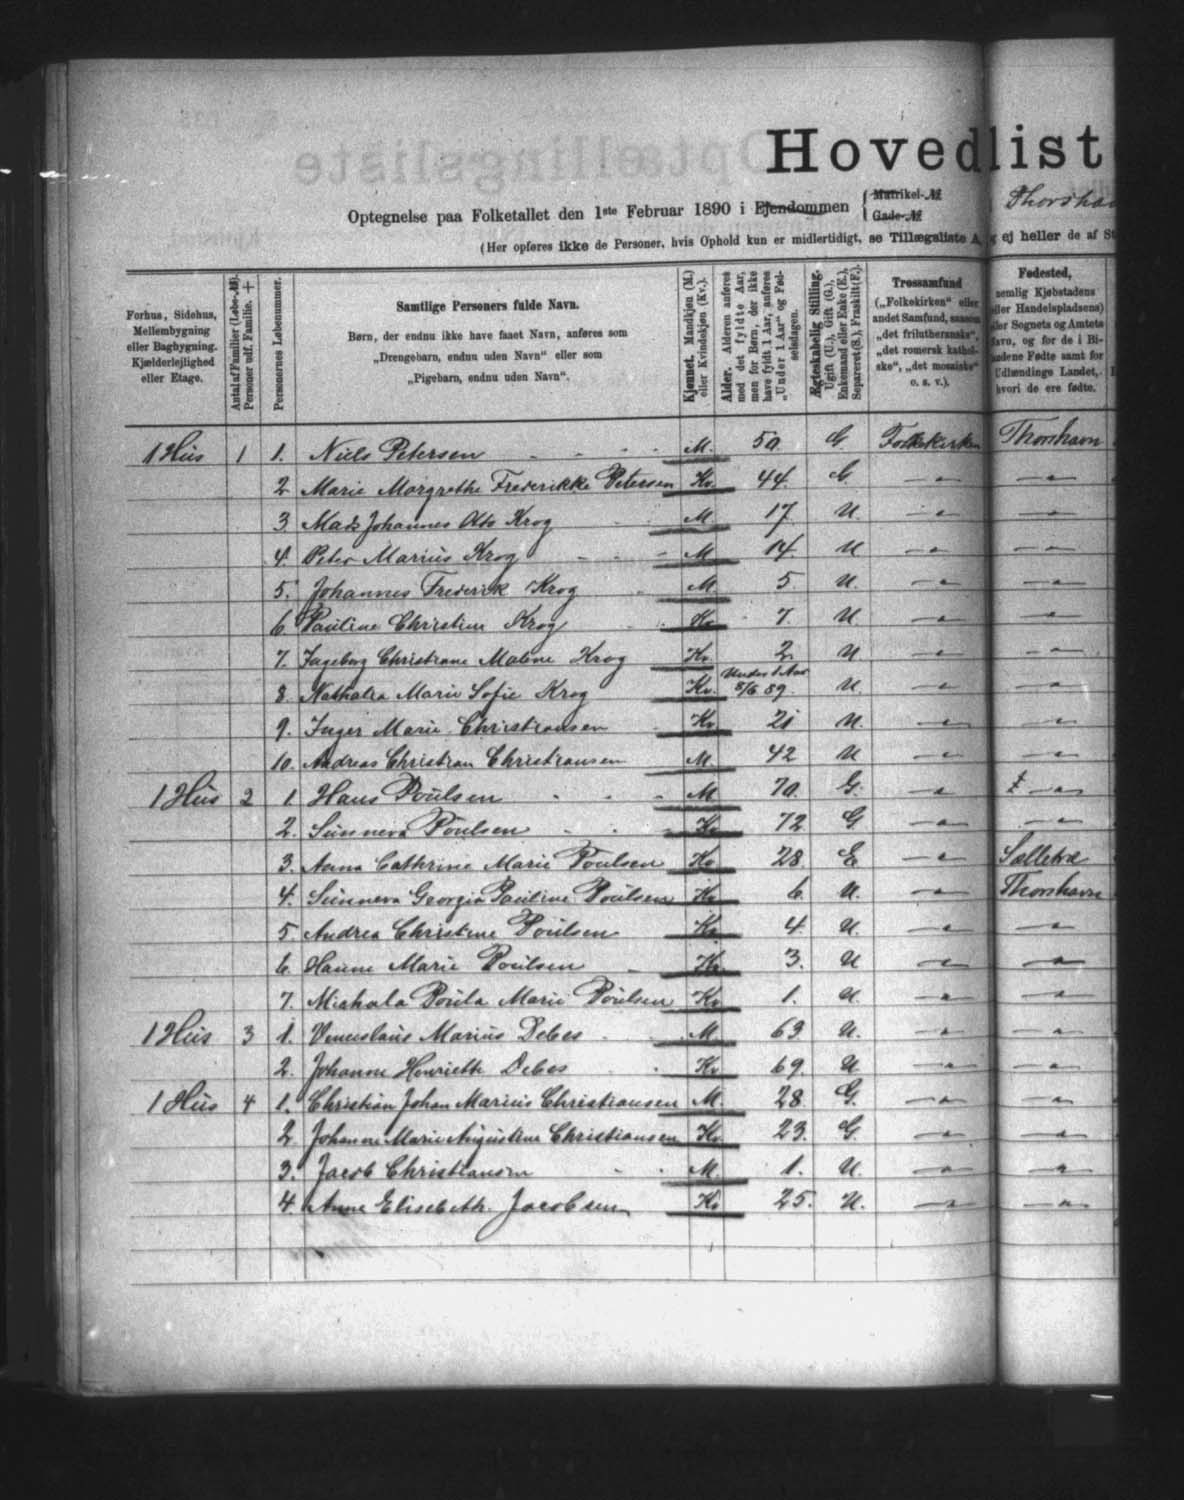 Hovedlist
Optegnelse paa Folketallet den 1ste Februar 1890 i Ejendommen { Matrikel-№ Gade-№ Thorshav
(Her opføres ikke de Personer, hvis Ophold kun er midlertidigt, se Tillægsliste A, og ej heller de af St
Forhus, Sidehus, Mellembygning eller Bagbygning. Kjælderlejlighed eller Etage.
Antal af Familier (Løbe-№). Personer udf. Familie. +
Personernes Løbenummer.
Samtlige Personers fulde Navn.
Børn, der endnu ikke have faaet Navn, anføres som
„Drengebarn, endnu uden Navn“ eller som
„Pigebarn, endnu uden Navn“.
Kjønnet. Mandkjøn (M.) eller Kvindekjøn (Kv.).
Alder. Alderen anføres med det fyldte Aar, men for Børn, der ikke have fyldt 1 Aar, anføres „Under 1 Aar“ og Fødselsdagen.
Ægteskabelig Stilling. Ugift (U.), Gift (G.), Enkemand eller Enke (E.), Separeret (S.), Fraskilt (F.).
Trossamfund („Folkekirken“ eller andet Samfund, saasom „det frilutheranske“, „det romersk katholske“, „det mosaiske“ o. s. v.).
Fødested, nemlig Kjøbstadens eller Handelspladsens eller Sognets og Amtets Navn, og for de i Bilandene Fødte samt for Udlændinge Landet, hvori de ere fødte.
1 Hus 1 1. Niels Petersen M. 50. G. Folkekirken Thorshavn
2 Marie Margrethe Frederikke Petersen Kv. 44. G. — " — — " —
3 Mads Johannes Otto Krog M 17 U. — " — — " —
4. Peter Marius Krog M 14. U — " — — " —
5. Johannes Frederik Krog M. 5. U. — " — — " —
6. Pauline Christine Krog Kv 7. U. — " — — " —
7. Ingeborg Christiane Maline Krog Kv. 2 U — " — — " —
8. Nathalia Marie Sofie Krog Kv. Under 1 Aar 8/6 89 U. — " — — " —
9. Inger Marie Christiansen Kv 21 U. — " — — " —
10. Andreas Christian Christiansen M. 42 U — " — — " —
1 Hus 2 1. Hans Poulsen M 70. G. — " — — " —
2. Sunneva Poulsen Kv 72 G — " — — " —
3. Anna Cathrine Marie Poulsen Kv 28. E — " — Selletræ
4. Sunneva Georgia Pauline Poulsen Kv 6. U. — " — Thorshavn
5. Andrea Christine Poulsen Kv 4. U. — " — — " —
6. Hanne Marie Poulsen Kv. 3. U — " — — " —
7. Michala Poula Marie Poulsen Kv 1. U. — " — — " —
1 Hus 3 1. Venceslaus Marius Debes M. 63. U. — " — — " —
2. Johanne Henriette Debes Kv 69. U — " — — " —
1 Hus 4 1. Christian Johan Marius Christiansen M. 28 G. — " — — " —
2. Johanne Marie Augustine Christiansen Kv. 23. G. — " — — " —
3. Jacob Christiansen M. 1. U. — " — — " —
4. Anne Elisebeth Jacobsen Kv 25. U. — " — — " —